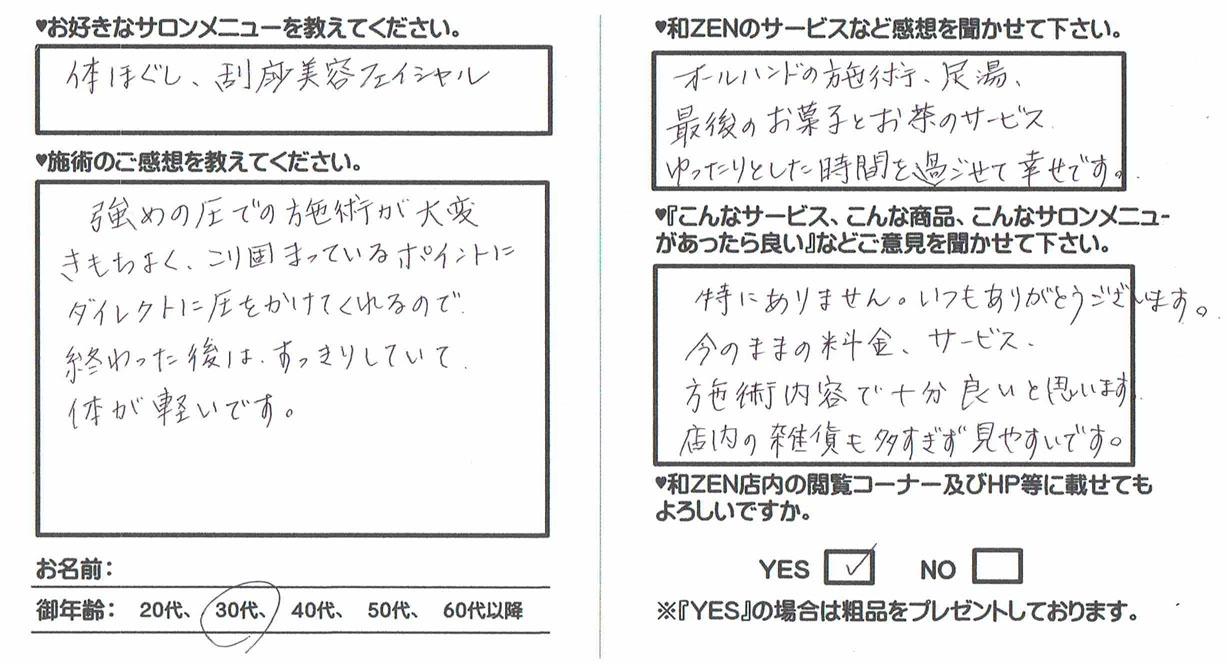 ♥お好きなサロンメニューを教えてください。
体ほぐし、刮痧美容フェイシャル
♥施術のご感想を教えてください。
強めの圧での施術が大変
きもちよく、こり固まっているポイントに
ダイレクトに圧をかけてくれるので
終わった後は、すっきりしていて
体が軽いです。
お名前：
御年齢： 20代、 30代、 40代、 50代、 60代以降
♥和ZENのサービスなど感想を聞かせて下さい。
オールハンドの施術、足湯、
最後のお菓子とお茶のサービス
ゆったりとした時間を過ごせて幸せです。
♥『こんなサービス、こんな商品、こんなサロンメニュー
があったら良い』などご意見を聞かせて下さい。
特にありません。いつもありがとうございます。
今のままの料金、サービス、
施術内容で十分良いと思います。
店内の雑貨も多すぎず見やすいです。
♥和ZEN店内の閲覧コーナー及びHP等に載せても
よろしいですか。
YES ✓ NO
※『YES』の場合は粗品をプレゼントしております。